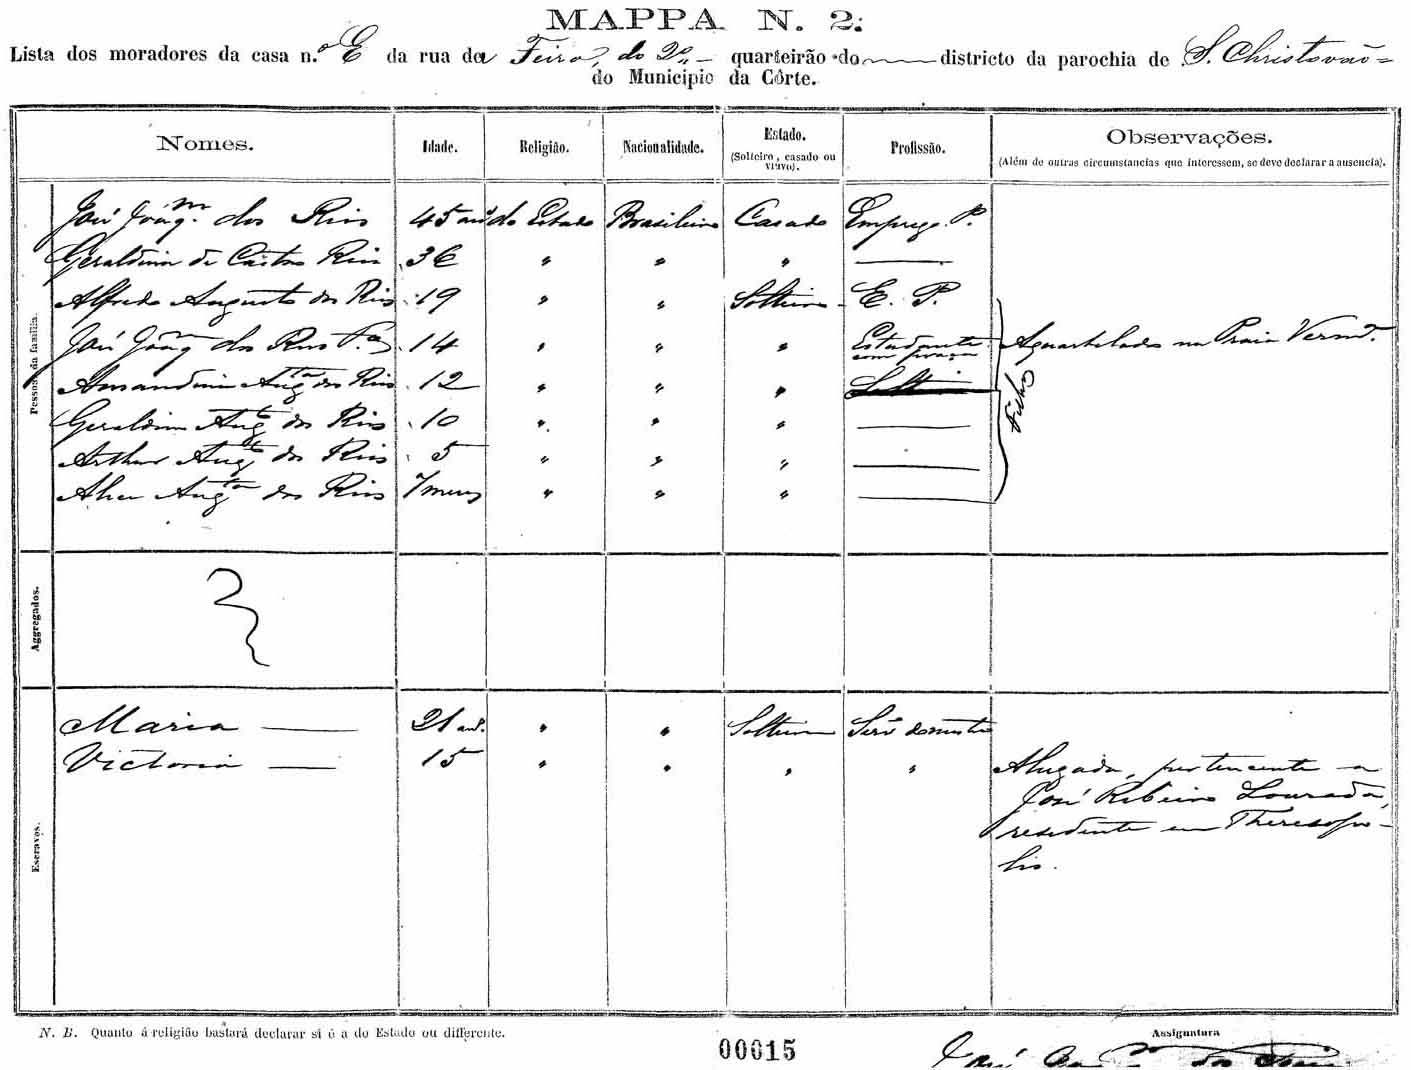 MAPPA N. 2.
Lista dos moradores da casa n.º E da rua da Feira, do 2º quarteirão do districto da parochia de S. Christovão
do Municipio da Côrte.
Nomes. Idade. Religião. Nacionalidade. Estado. (Solteiro, casado ou viuvo). Profissão. Observações. (Além de outras circumstancias que interessem, se deve declarar a ausencia).
Pessoas da familia.
José Joaqm. dos Reis 45 ans do Estado Brasileiro Casado Emprego P.
Geraldina de Castro Reis 36 " " "
Alfredo Augusto dos Reis 19 " " Solteiro E. P.
José Joaqm dos Reis Fo 14 " " " Estudante com praça Aquartelado na Praia Verma.
Amandina Augta dos Reis 12 " " "
Geraldina Augta dos Reis 10 " " "
Arthur Augto dos Reis 5 " " "
Augta dos Reis 7 mezes " " "
Filhos
Aggregados.
Escravos.
Maria 21 ans. " " Solteira Servo domestico
Victoria 15 " " " " Alugada, pertencente a
José Ribeiro Lourada,
residente em Theresopo-
lis.
N. B. Quanto á religião bastará declarar si é a do Estado ou differente.
Assignatura
00015
José dos Reis